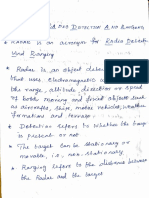 DETECTION AND RANGING
• RADAR is an acronym for Radio Detecti
And Ranging
• Radar is an object detection
that uses electromagnetic
the range, altitude direction or speed
of both moving and fixed objects such
as aircrafts, ships, motor vehicles, weather
formations and terrain.
• Detection refers to whether the target
is present or not
• The target can be stationary or
movable, i.e., non-stationary
• Ranging refers to the distance between
the Radar and the target